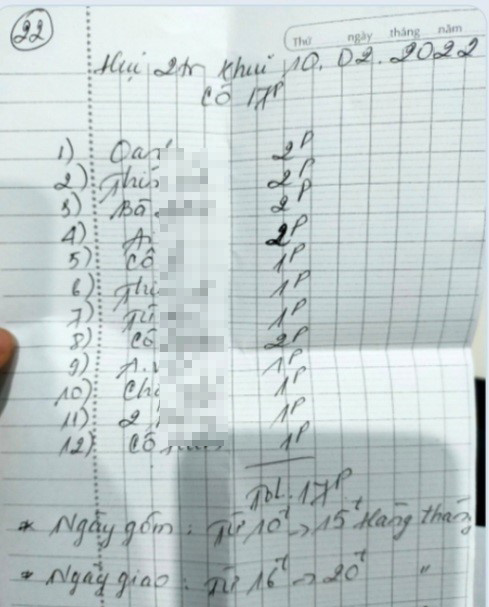 22
Thứ ngày tháng năm
Hụi 2tr Khui 10.02.2022
Có 17P
1) Oan 2P
2) Thi 2P
3) Bà 2P
4) A 2P
5) Cô 1P
6) Th 1P
7) 1P
8) Cô 2P
9) A. 1P
10) Ch 1P
11) 2 1P
12) Cô 1P
17P
* Ngày góm : Từ 10t -> 15t Hàng tháng
* Ngày giao : Từ 16t -> 20t "